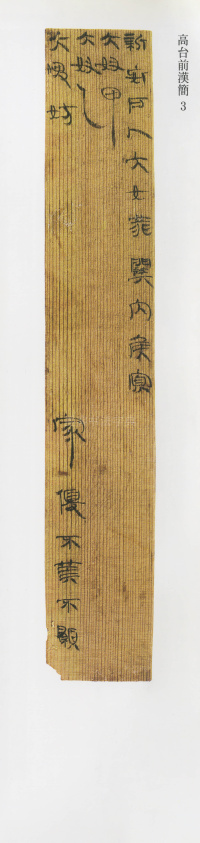 高台前漢簡 3
新安戶人大女燕關內侯寡
大奴甲
大奴乙
大婢妨
家優不算不顥